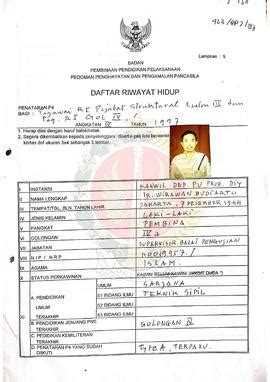 Lampiran : 5
463/OP7/97
BADAN
PEMBINAAN PENDIDIKAN PELAKSANAAN
PEDOMAN PENGHAYATAN DAN PENGAMALAN PANCASILA
DAFTAR RIWAYAT HIDUP
PENATARAN P4
BAGI : Pegawai RI Pejabat Struktural Eselon III dan
Peg. RI GOL IV
ANGKATAN 1997
1. Harap diisi dengan huruf balok/cetak.
2. Segera dikembalikan kepada penyelenggara, disertai pas foto berwarna
kertas dof ukuran 3x4 sebanyak 3 lembar.
I INSTANSI KANWIL DEP. PU PROP. DIY
II NAMA LENGKAP IR. WIRAWAN BUDIARTO
III TEMPAT/TGL, BLN, TAHUN LAHIR JAKARTA, 7 DESEMBER 1944
IV JENIS KELAMIN LAKI - LAKI
V PANGKAT PEMBINA
VI GOLONGAN IV a
VII JABATAN SUPERVISOR BALAI PENGUJIAN
VIII NIP / NRP 110019957
IX AGAMA ISLAM
X STATUS PERKAWINAN KAWIN/ BELUM KAWIN/ JANDA/ DUDA *)
XI A. PENDIDIKAN UMUM TERAKHIR S1 BIDANG ILMU SARJANA
S2 BIDANG ILMU TEKNIK SIPIL
S3 BIDANG ILMU
B. PENDIDIKAN JENJANG PNS TERAKHIR GOLONGAN
C. PENDIDIKAN KEMILITERAN TERAKHIR
XII D. PENATARAN P4 YANG SUDAH DIIKUTI TYPE A TERPADU.